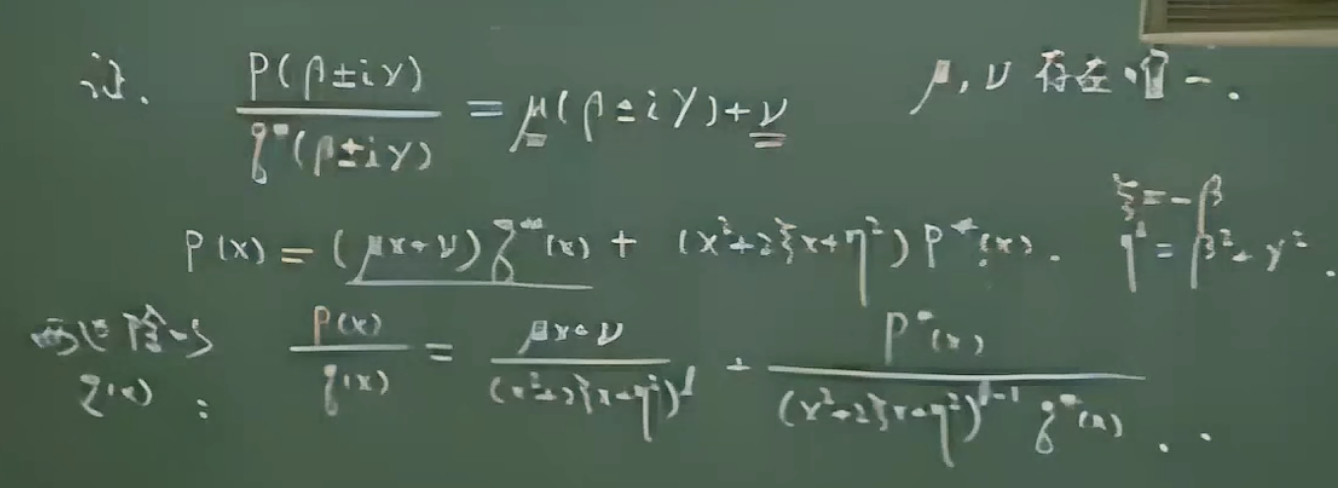 记. P(β±iγ)/q*(β±iγ) = μ(β±iγ)+ν μ,ν 存在唯一.
ξ=-β
P(x) = (μx+ν)q*(x) + (x²+2ξx+η²)P*(x). η²=β²+γ².
两边除以 P(x)/q(x) = (μx+ν)/(x²+2ξx+η²)^l + P*(x)/((x²+2ξx+η²)^(l-1) q*(x)).
q(x) :